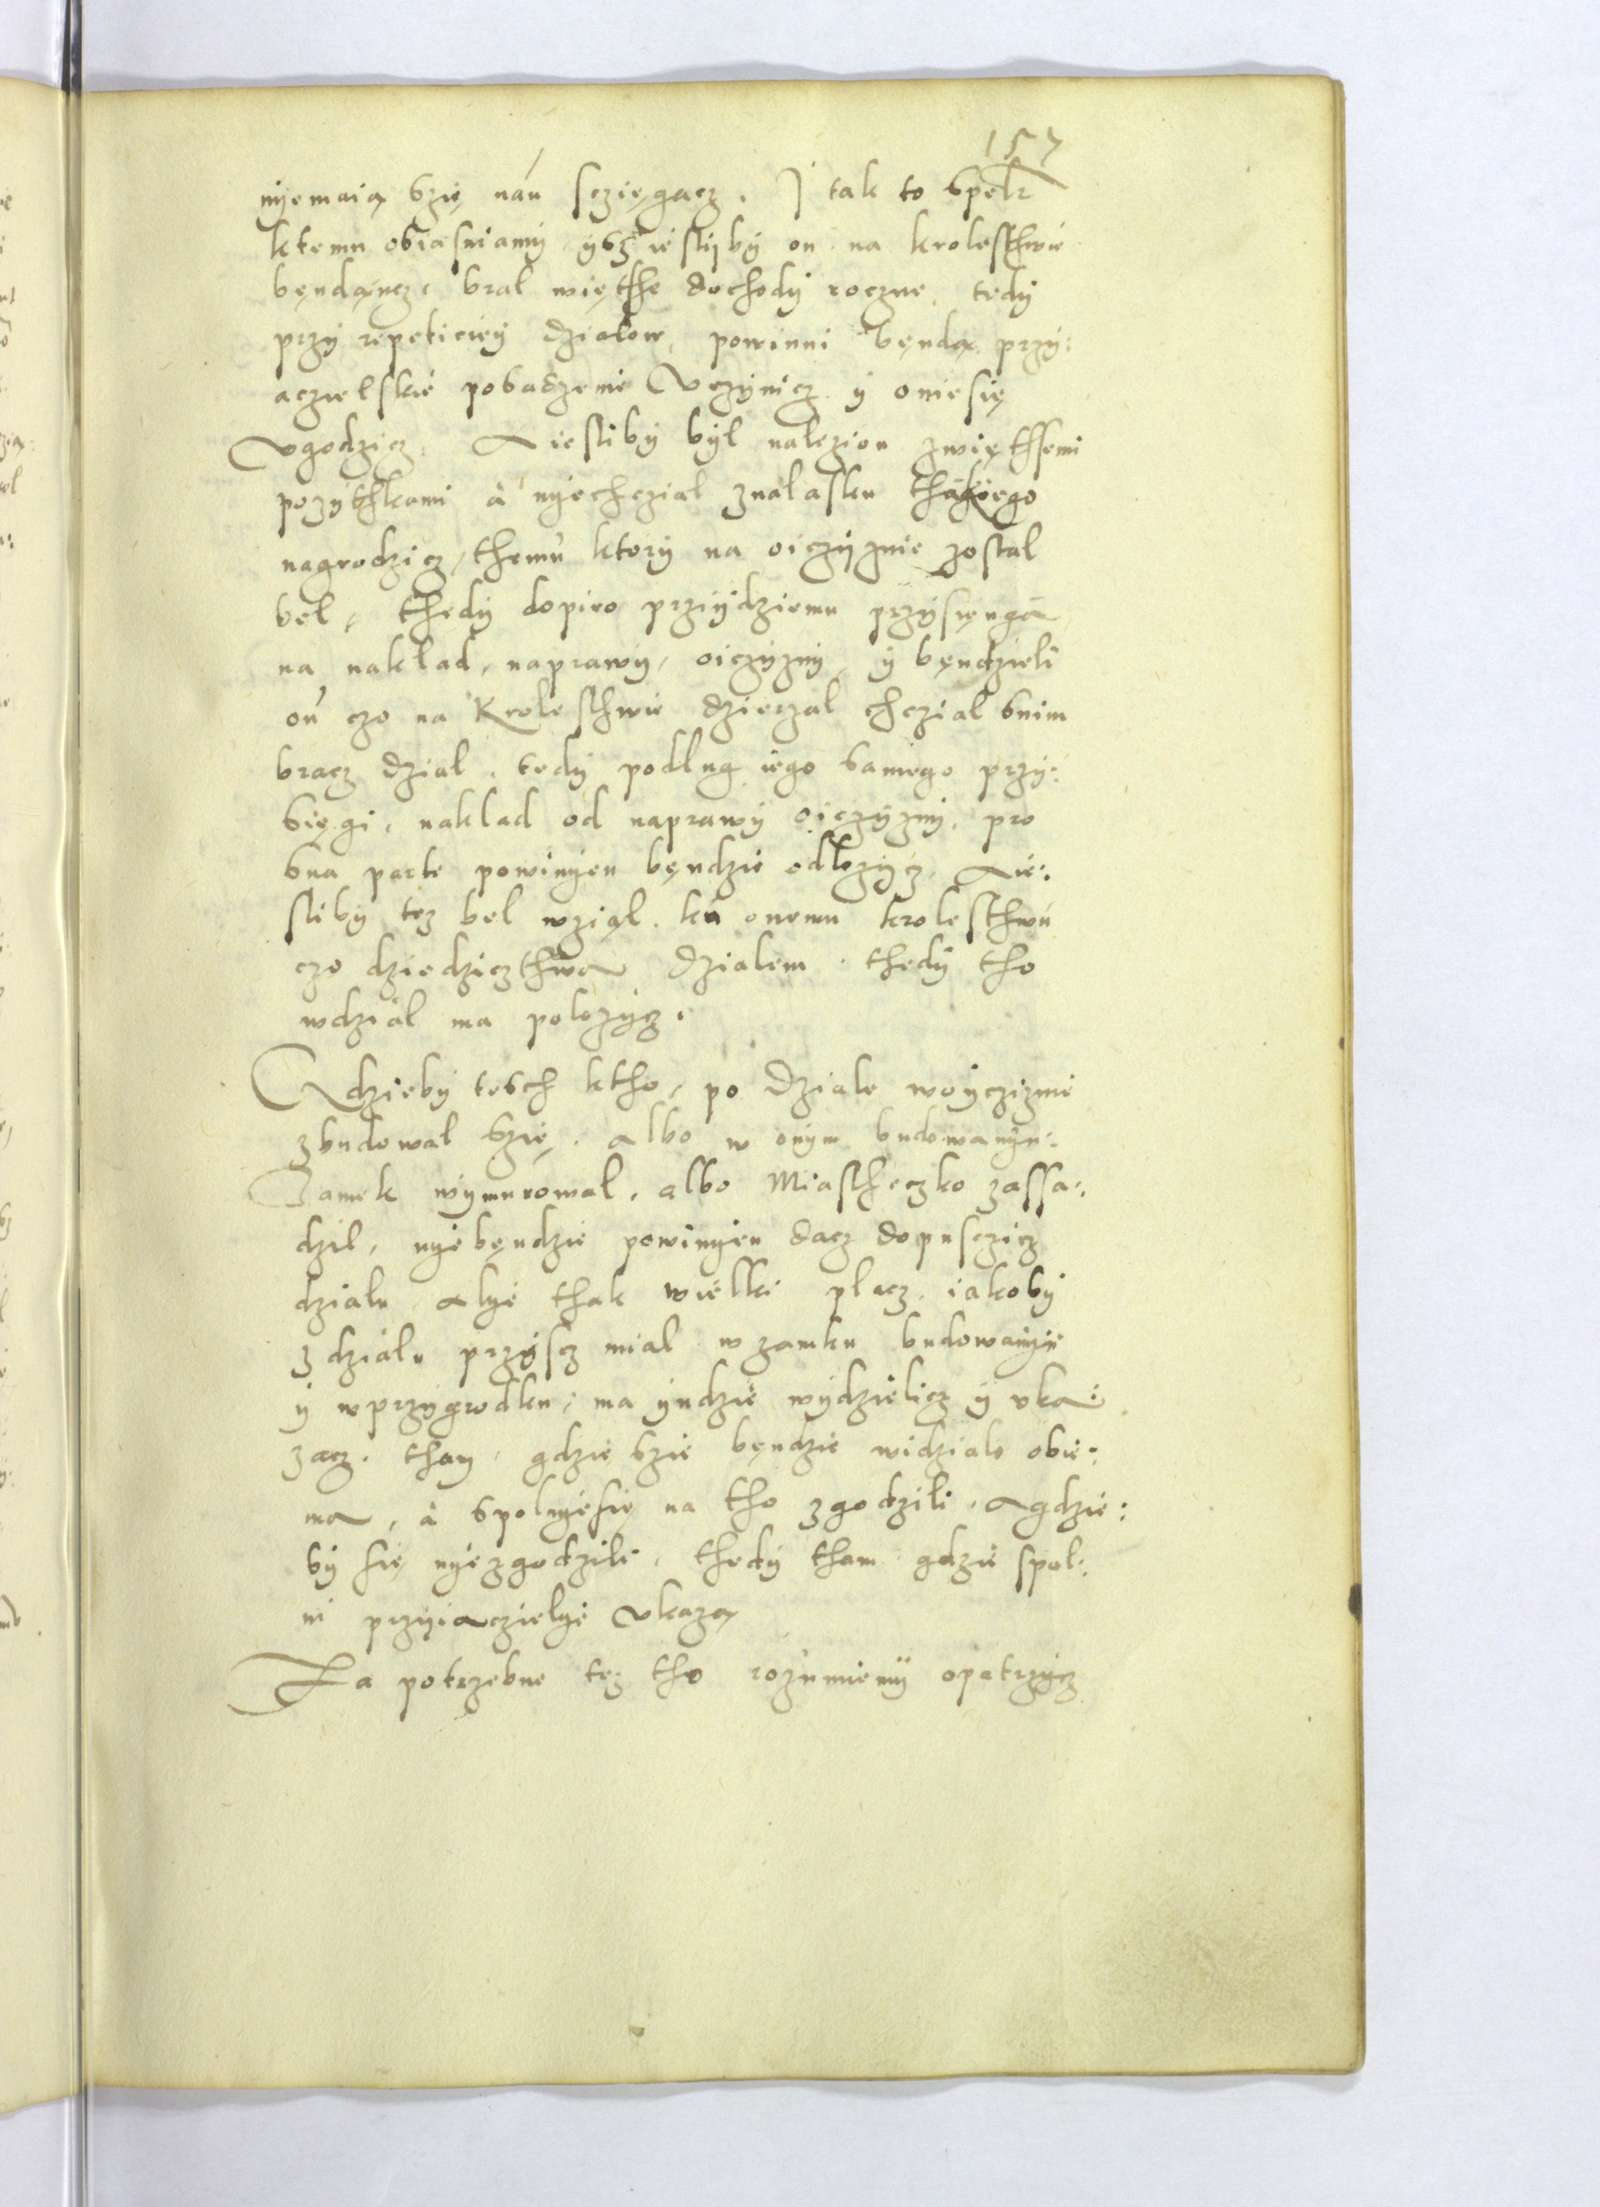 157
nyemaią szię nan scziągacz. J tak to spolz
ktemu obiasniamy ysz iestlyby on na krolesthwie
bęndąncz, bral więthe dochody roczne, tedy
przy repeticiey dzialow, powinni bęndą przy:
aczielskie pobaczenie Vczynicz y oniesię
Vgodzicz. A iestliby byl nalezion zwięthsemi
pozythkami à nyechczial znalasku thakiego
nagrodzicz, themu ktory na oiczyznie zostal
bel, thedy dopiro przydziemu przysięnga
na naklad, naprawy, oiczyzny, y bęndzieli
on czo na Krolesthwie dzierzal chczial snim
bracz dzial, tedy podlug iego samego przy:
sięgi, naklad od naprawy oiczyzny, pro
sua parte powinyen bęndzie odlozycz, A ie:
stliby tez bel wziąl ku onemu krolesthwu
czo dziedzicthwa dzialem thedy tho
wdzial ma polozycz.
Gdzieby tesch ktho, po dziale woycziznie
zbudowal szię, albo w onym budowanyu:
Zamek wymurowal, albo Miastheczko zassa:
dzil, nyebęndzie powinyen dacz dopusczicz
dzialu alye thak wielki placz iakoby
zdzialu przyscz mial w zamku budowanyie
y wprzygrodku, ma yndzie wydzielicz y vka:
zacz. tham, gdzie szie bęndzie widzialo obie:
ma, à spolnyesię na tho zgodzili. A gdzie:
by się nyezgodzili, thedy tham gdzie spol:
ni przyiaczielye Vkazą
Za potrzebne tez tho rozumiemy opatrzycz